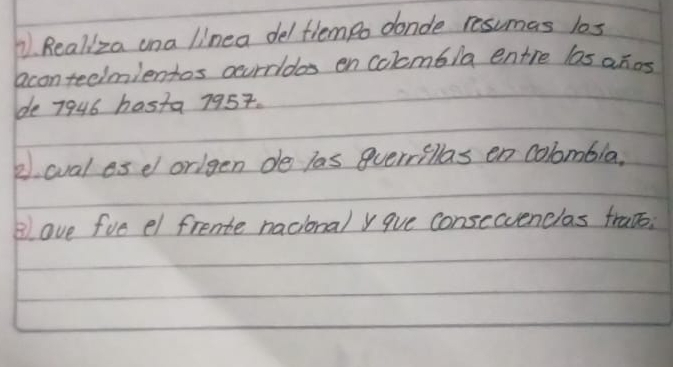 1). Realiza una linea del tiempo donde resumas los
acontecimientos ocurridos en colombia entre los años
de 1946 hasta 1957.
2). cual es el origen de las guerrillas en colombia.
3). Que fue el frente nacional y que consecuencias trajo.